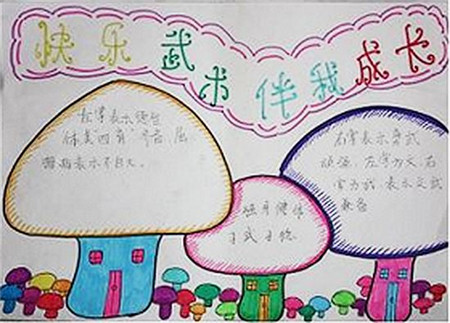 快乐武术伴我成长
左掌表示德智
体美四育"齐备,屈
拇指表示不自大。
身健体
习武习
右拳表示勇武
顽强,左掌为文,右
拳为武,表示文武
兼备